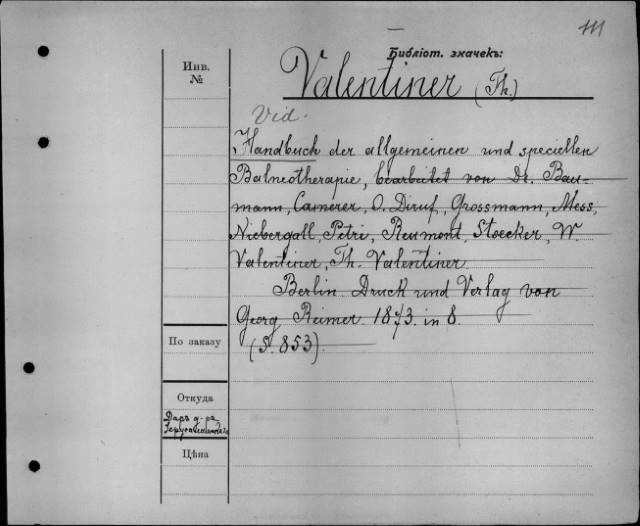 111
Библіот. значекъ:
Инв.
№
Valentiner (Th.)
Vid.
Handbuch der allgemeinen und speciellen
Balneotherapie, bearbeitet von Dr. Bau-
mann, Camerer, O. Diruf, Grossmann, Mess,
Niebergall, Petri, Reumont, Stoecker, W.
Valentiner, Th. Valentiner.
Berlin Druck und Verlag von
Georg Reimer 1873. in 8.
По заказу
(S. 853)
Откуда
Даръ д-ра
Цѣна